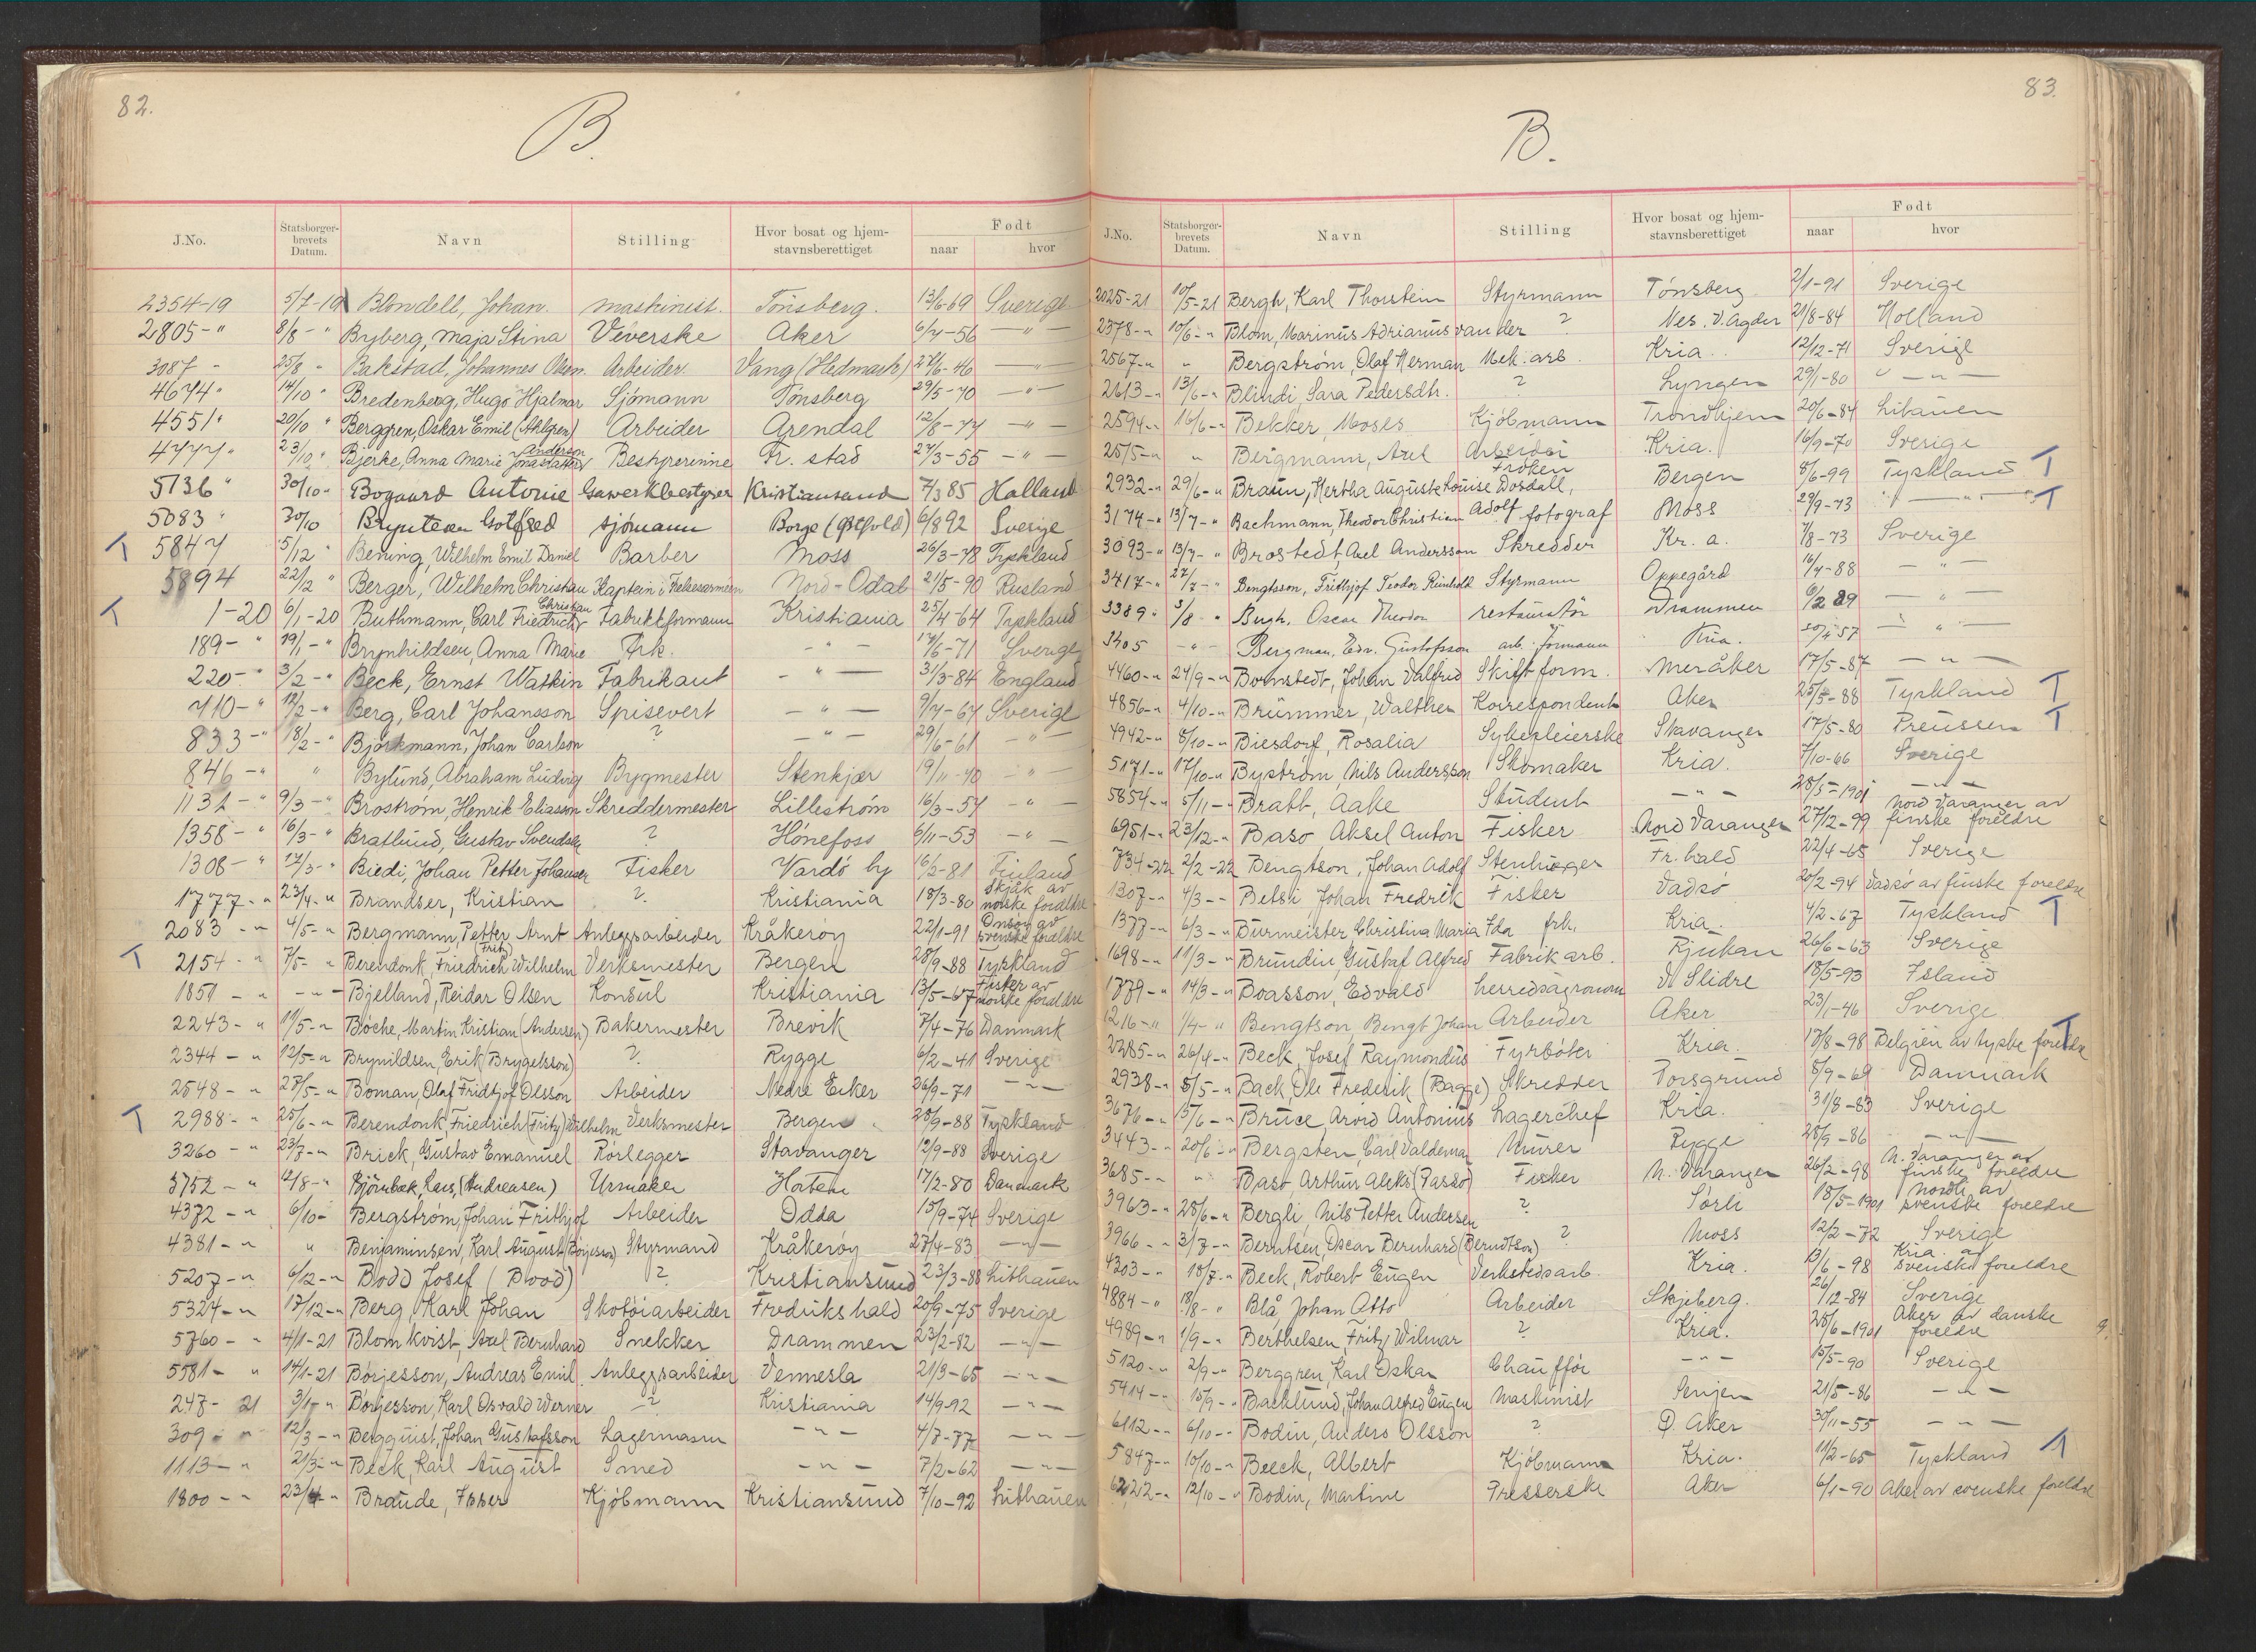 82.
B.
J.No. Statsborger-brevets Datum. Navn Stilling Hvor bosat og hjem-stavnsberettiget Født naar hvor
2354-19 5/7-19 Blondell, Johan. maskinist. Tönsberg. 13/6-69 Sverige
2805-" 8/8-" Byberg, Maja Stina Veverske Aker 6/4-56 —"—
3087 - 25/8 " Bakstad, Johannes Olsen. Arbeider Vang (Hedmark) 27/6-46 —"—
4674" 14/10 " Bredenberg, Hugo Hjalmar Sjömann Tönsberg 29/5-70 —"—
4551" 20/10 " Berggren, Oskar Emil (Ahlgren) Arbeider Arendal 12/8-77 —"—
4777" 23/10 " Bjerke, Anna Marie Anderson Bestyrerinne Fr. stad 27/3-55 —"—
5136 " 30/10- Bogaard Antonie Gaswerkbestyrer Kristiansand 7/3 85 Holland
5083 " 30/10 Bryntesen Gotfred sjömann Borge (Østfold) 6/8 92 Sverige
T 5847 5/12 " Bening, Wilhelm Emil Daniel Barber Moss 26/3-78 Tyskland
5894 22/12 " Berger, Wilhelm Christian Kaptein i Frelsesarmeen Nord-Odal 21/5-90 Rusland
T 1-20 6/1-20 Buthmann, Carl Friedrich Christian Fabrikkformann Kristiania 25/4-64 Tyskland
189-" 19/1-" Brynhildsen, Anna Marie Frk. -"- 17/6-71 Sverige
220-" 3/2-" Beck, Ernst Watkin Fabrikant -"— 31/3-84 England
710-" 12/2-" Berg, Carl Johansson Spisevert —"— 9/7-67 Sverige
833-" 18/2-" Björkmann, Johan Carlson ? —"— 29/6-61 -"—
846-" " Bylund, Abraham Ludvig Bygmester Stenkjær 19/11-70 -"—
1132-" 9/3-" Broström, Henrik Eliasson Skreddermester Lilleström 16/3-57 -"—
1358-" 16/3-" Bratlund, Gustav Svendsen ? Hönefoss 6/11-53 -"—
1308-" 17/3-" Biedi, Johan Petter Johansen Fisker Vardö by 16/2-81 Finland
1777-" 23/4-" Brandser, Kristian ? Kristiania 18/3-80 Skjåk av norske foreldre
2083-" 4/5-" Bergmann, Petter Arnt Anleggsarbeider Kråkeröy 22/1-91 Onsöy av svenske foreldre
T 2154-" 7/5-" Berendonk, Friedrich (Fritz) Wilhelm Verksmester Bergen 28/9-88 Tyskland
1851-" -"- Bjelland, Reidar Olsen Konsul Kristiania 13/5-67 Fisker av norske foreldre
2243-" 11/5-" Böche, Martin Kristian (Andersen) Bakermester Brevik 7/4-76 Danmark
2344-" 12/5-" Brynildsen, Erik (Brygelsson) ? Rygge 6/2-41 Sverige
2548-" 27/5-" Boman, Olaf Fridtjof Olsson Arbeider Nedre Eiker 26/9-71 -"-
T 2988-" 25/6-" Berendonk, Friedrich (Fritz) Wilhelm Verksmester Bergen 28/9-88 Tyskland
3260-" 23/7-" Brick, Gustav Emanuel Rörlegger Stavanger 12/9-88 Sverige
3752-" 12/8-" Björnbæk, Lars, (Andreasen) Urmaker Haten 17/2-80 Danmark
4372-" 6/10- Bergström, Johan Frithjof Arbeider Odda 15/9-74 Sverige
4381-" " Benjaminsen, Karl August (Börjesson) Styrmand Kråkeröy 27/4-83 -"-
5207-" 6/12-" Bodd Josef (Bood) ? Kristiansund 23/3-88 Lithauen
5324-" 17/12-" Berg Karl Johan Skotöiarbeider Fredrikshald 20/9-75 Sverige
5760-" 4/1-21 Blomkvist, Axel Bernhard Snekker Drammen 23/2-82 -"-
5581-" 14/1-21 Börjesson, Andreas Emil. Anleggsarbeider Vennesla 21/3-65 -"-
247-21 3/1-" Börjesson, Karl Osvald Werner -? Kristiania 14/9-92 -"-
309-" 12/3-" Bergquist, Johan Gustafsson Lagermann -"- 4/7-77 -"-
1113-" 21/3-" Beck, Karl August Smed -"- 7/2-62 -"-
1800-" 23/4-" Braude, Isser Kjöbmann Kristiansund 7/10-92 Lithauen
83.
B.
J.No. Statsborger-brevets Datum. Navn Stilling Hvor bosat og hjem-stavnsberettiget Født naar hvor
2025-21 10/5-21 Bergh, Karl Thorstein Styrmann Tönsberg 2/1-91 Sverige
2378-" 10/6-" Blom, Marinus Adrianus van der ? Nes. V. Agder 21/8-84 Holland
2567-" " Bergström, Olaf Herman Mek. arb. Kria. 12/12-71 Sverige
2613-" 13/6-" Blindi, Sara Pedersdtr. ? Lyngen 29/1-80 " -"-
2594-" 16/6-" Bekker, Moses Kjöbmann Trondhjem 20/6-84 Litauen
2515-" " Bergmann, Axel Arbeider Kria. 16/9-70 Sverige
2932-" 29/6-" Braun, Hertha Auguste Louise Dosdall, Fröken Bergen 8/6-99 Tyskland T
3174-" 13/7-" Bachmann, Theodor Christian Adolf fotograf Moss 29/9-73 -"- T
3093-" 13/7-" Brostedt, Axel Andersson Skredder Kr. a. 7/8-73 Sverige
3417-" 27/7-" Bengtsson, Frithjof Teodor Reinhold Styrmann Oppegård 16/4-88 -"-
3389" 3/8 " Bugh, Oscar Theodor restauratör Drammen 6/2 89 -"-
3405 -"- Bergman, Edv. Gustafsson arb. formann Kria. 30/4 57 -"-
4460-" 24/9-" Bomstedt, Johan Valfrid Skift form. Meråker 17/5-87 -"-
4856-" 4/10-" Brümmer, Walther Korrespondent Aker 25/5-88 Tyskland T
4942-" 8/10-" Biesdorf, Rosalia Sykepleierske Stavanger 17/5-80 Preussen T
5171-" 17/10-" Byström, Nils Andersson Skomaker Kria. 7/10-66 Sverige
5854-" 5/11-" Bratt, Aake Student -"- 28/5-1901 -"-
6951-" 23/12-" Baso Aksel Anton Fisker Nord Varanger 27/12-99 Nord Varanger av finske foreldre
734-22 2/2-22 Bengtson, Johan Adolf Stenhugger Fr. hald 22/4-65 Sverige
1307-" 4/3-- Betsi Johan Fredrik Fisker Vadsö 20/2-94 Vadsö av finske foreldre
1377-" 6/3-" Burmeister Christina Maria Ida frk. Kria. 4/2-67 Tyskland T
1698-" 11/3-" Brundin, Gustaf Alfred Fabrik arb. Rjukan 26/6-63 Sverige
1779-" 14/3-" Boasson, Edvald herredsagronom V. Slidre 18/5-93 Island
6216-" 1/4-" Bengtson Bengt Johan Arbeider Aker 23/1-46 Sverige
2285-" 26/4-" Beck, Josef Raymondus Fyrböter Kria. 17/8-98 Belgien av tyske foreldre T
2938-" 5/5-" Back, Ole Frederik (Bagge) Skredder Porsgrund 8/9-69 Danmark
3676-" 15/6-" Bruce, Arvid Antonius Lagerchef Kria. 31/8-83 Sverige
3443-" 20/6-" Bergsten, Carl Valdemar Murer Rygge 28/9-86 -"-
3685-" " Baso, Arthur Aleks (Passo) Fisker N. Varanger 26/2-98 N. Varanger av finske foreldre
3963-" 28/6-" Bergli, Nils Petter Andersen ? Sörli 18/5-1901 Nordli av svenske foreldre
3966-" 3/7-" Berntsen, Oscar Bernhard (Berndtson) ? Moss 12/2-72 Sverige
4203-" 18/7-" Beck, Robert Eugen Verkstedsarb. Kria. 13/6-98 Kria. av svenske foreldre
4884-" 18/8-" Blå, Johan Otto Arbeider Skjeberg. 26/12-84 Sverige
4989-" 1/9-" Berthelsen, Fritz Wilmar ? Kria. 28/6-1901 Aker av danske foreldre
5120-" 2/9-" Berggren, Karl Oskar Chauffför -"- 15/5-90 Sverige
5414-" 15/9-" Backlund, Johan Alfred Eugen Maskinist Senjen 21/5-86 -"-
6112-" 6/10-" Bodin, Anders Olsson ? Ö. Aker 30/11-55 -"-
5847-" 10/10-" Beeck, Albert Kjöbmann Kria. 11/2-65 Tyskland T
6222-" 12/10-" Bodin, Martine Presserske Aker 6/1-90 Aker av svenske foreldre